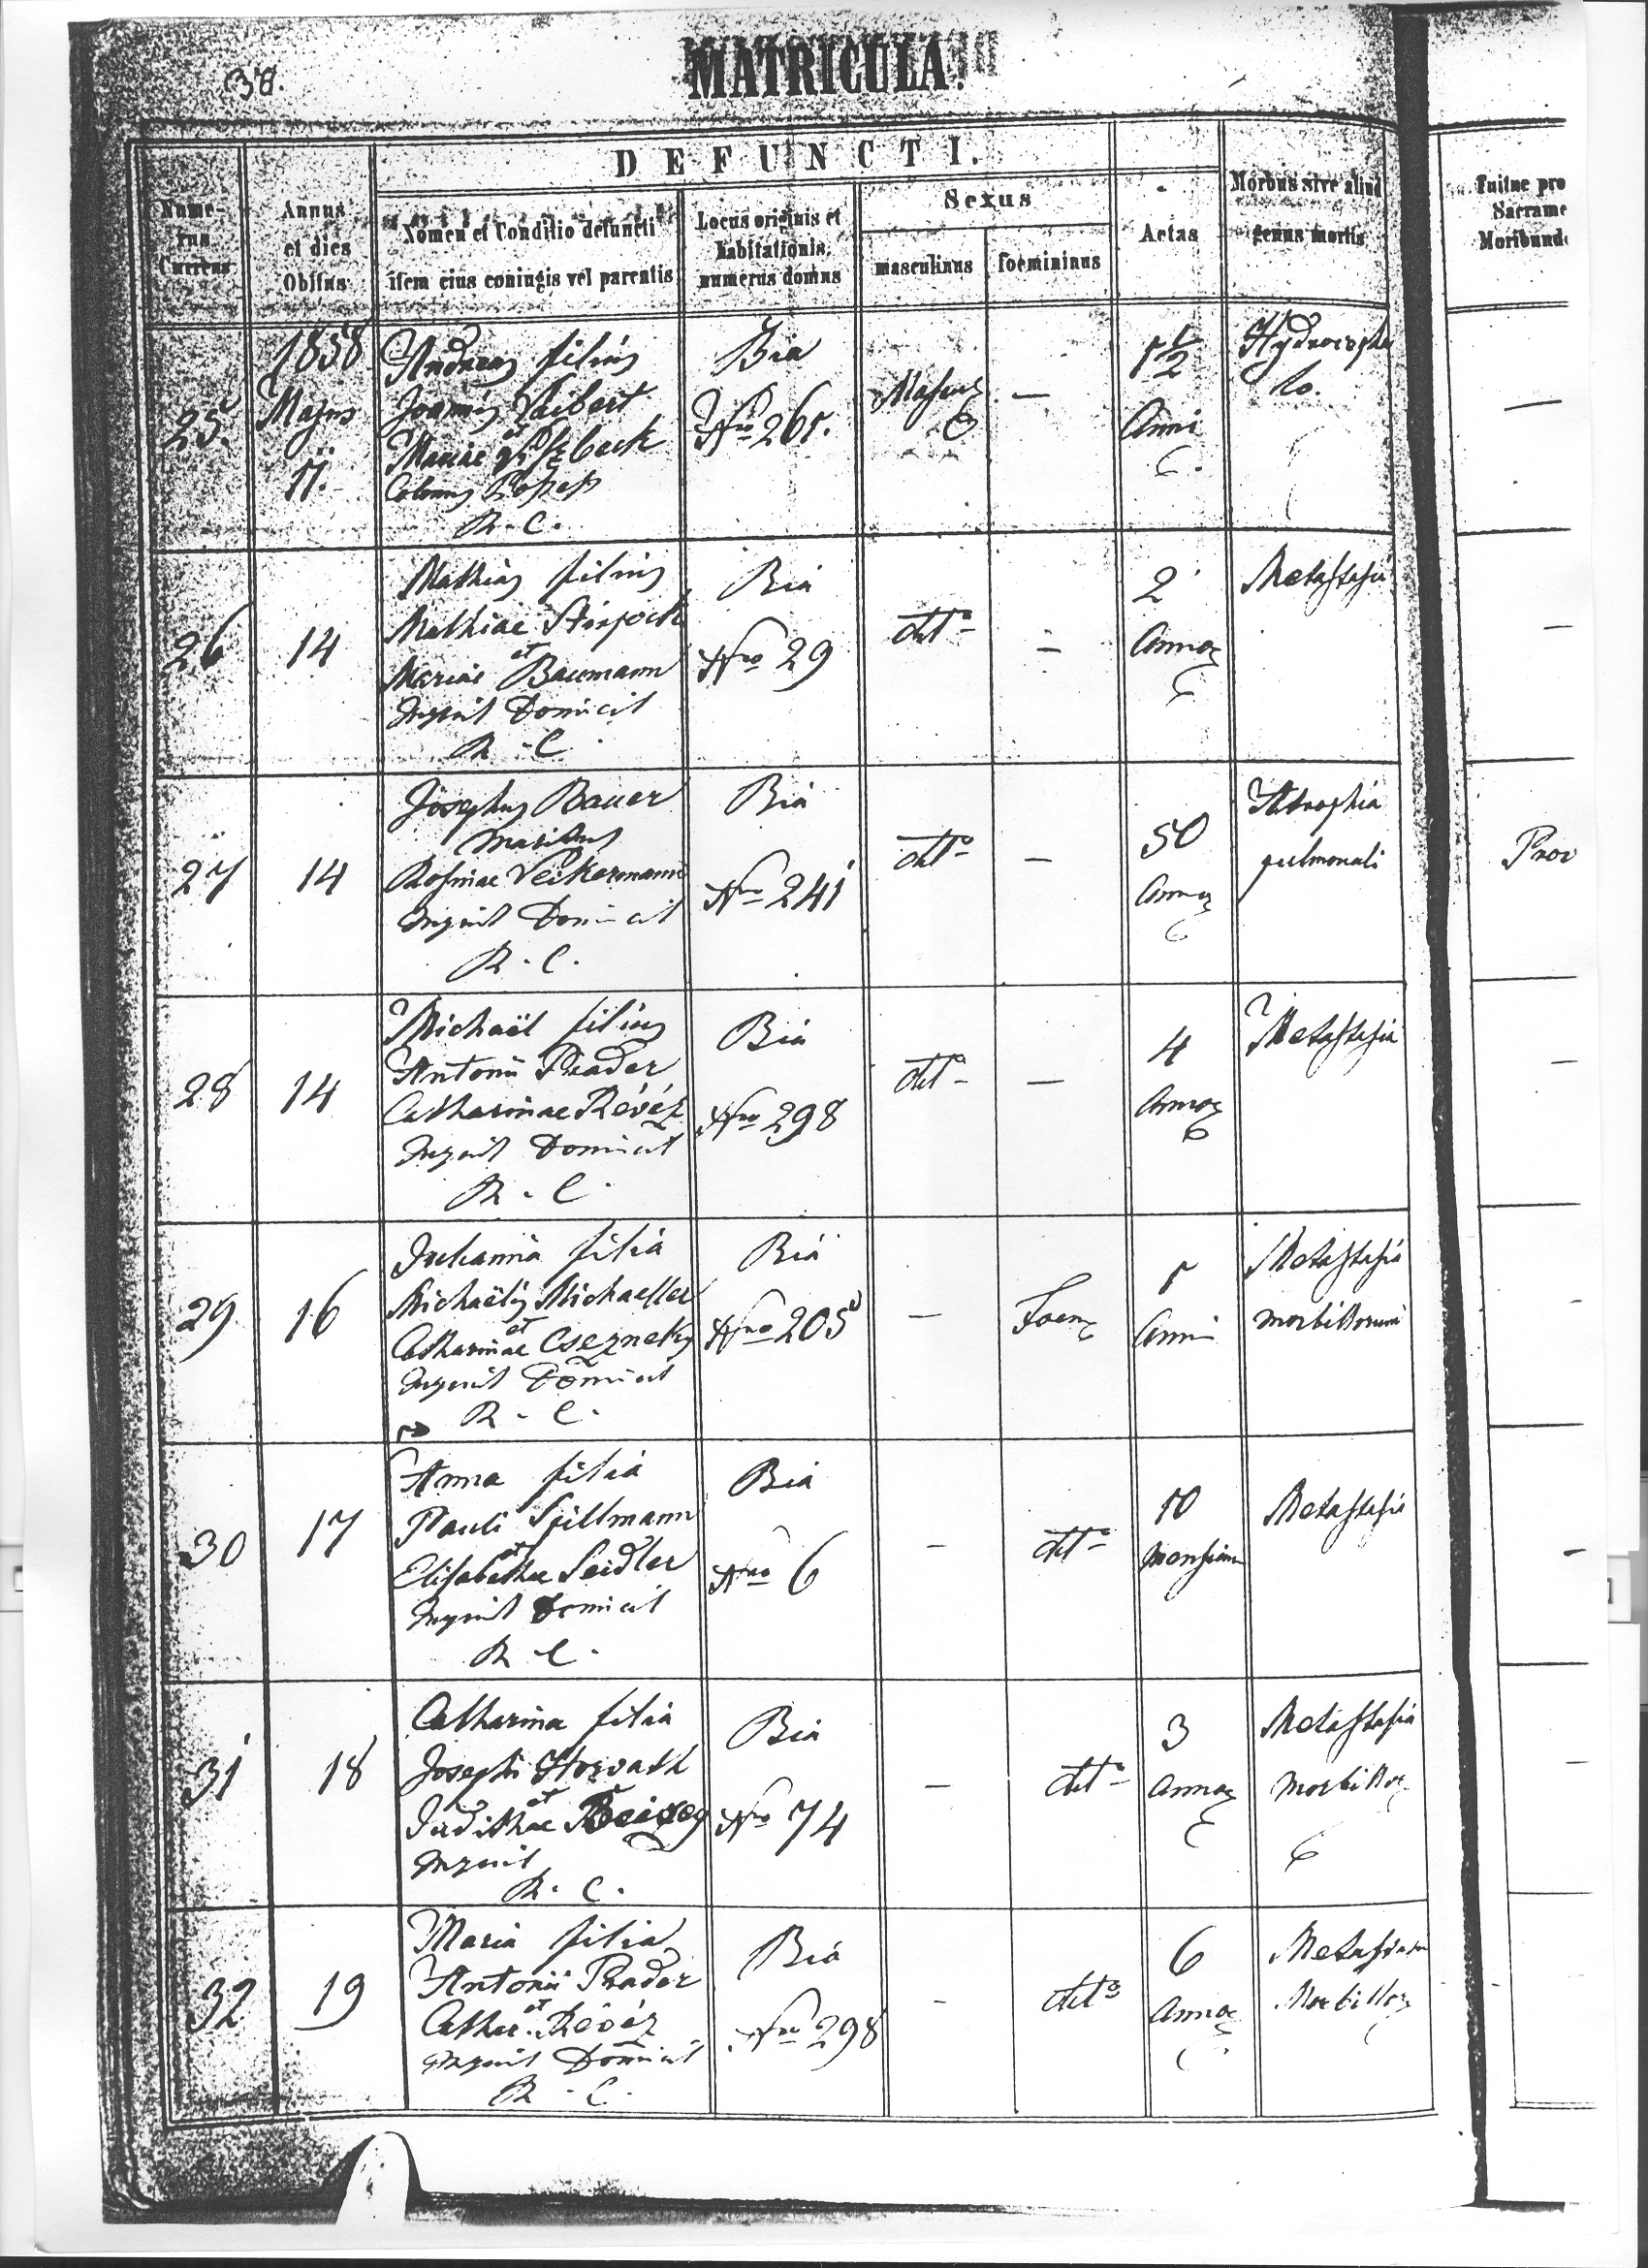 38.
MATRICULA.
DEFUNCTI.
Nume-
rus
Currens
Annus
et dies
Obitus
Nomen et Conditio defuncti
item eius coniugis vel parentis
Locus originis et
habitationis,
numerus domus
Sexus
masculinus
foemininus
Aetas
Morbus sive aliud
genus mortis
Fuitne pro
Sacrame
Moribund
25.
1858
Majus
11.
Andreas filius
Joannis Vaibert
et
Mariae
Colonus
R. C.
Bia
Nro 261.
Mascul
—
1 1/2
Anni
Hydroceph
lo.
—
26
14
Mathias filius
Mathiae
et
Mariae Baumann
Inquil Domicil
R. C.
Bia
Nro 29
dtto
—
2
Annor
Metastasis
—
27
14
Josephus Bauer
Maritus
Rosinae Veikermann
Inquil Domicil
R. C.
Bia
Nro 241
dtto
—
50
Annor
Atrophia
pulmonali
Prov
28
14
Michaël filius
Antonii Prader
Catharinae Révéz
Inquil Domicil
R. C.
Bia
Nro 298
dtto
—
4
Annor
Metastasis
—
29
16
Julianna filia
Michaëlis Michaeller
et
Catharinae Csezneky
Inquil Domicil
R. C.
Bia
Nro 205
—
Foem
1
Anni
Metastasis
morbillorum
—
30
17
Anna filia
Pauli Spillmann
et
Elisabethae Seidler
Inquil Domicil
R. C.
Bia
Nro 6
—
dtto
10
Mensium
Metastasis
—
31
18
Catharina filia
Josephi Horvath
et
Judithae
Inquil
R. C.
Bia
Nro 74
—
dtto
3
Annor
Metastasis
Morbillor
—
32
19
Maria filia
Antonii Prader
et
Cathar. Révéz
Inquil Domicil
R. C.
Bia
Nro 298
—
dtto
6
Annor
Morbillor